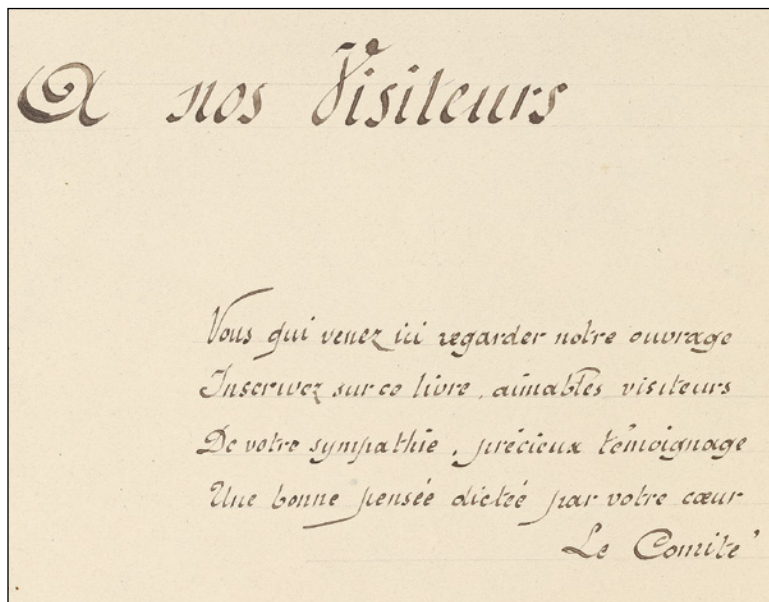 A nos Visiteurs
Vous qui venez ici regarder notre ouvrage
Inscrivez sur ce livre, aimables visiteurs
De votre sympathie, précieux témoignage
Une bonne pensée dictée par votre cœur
Le Comité